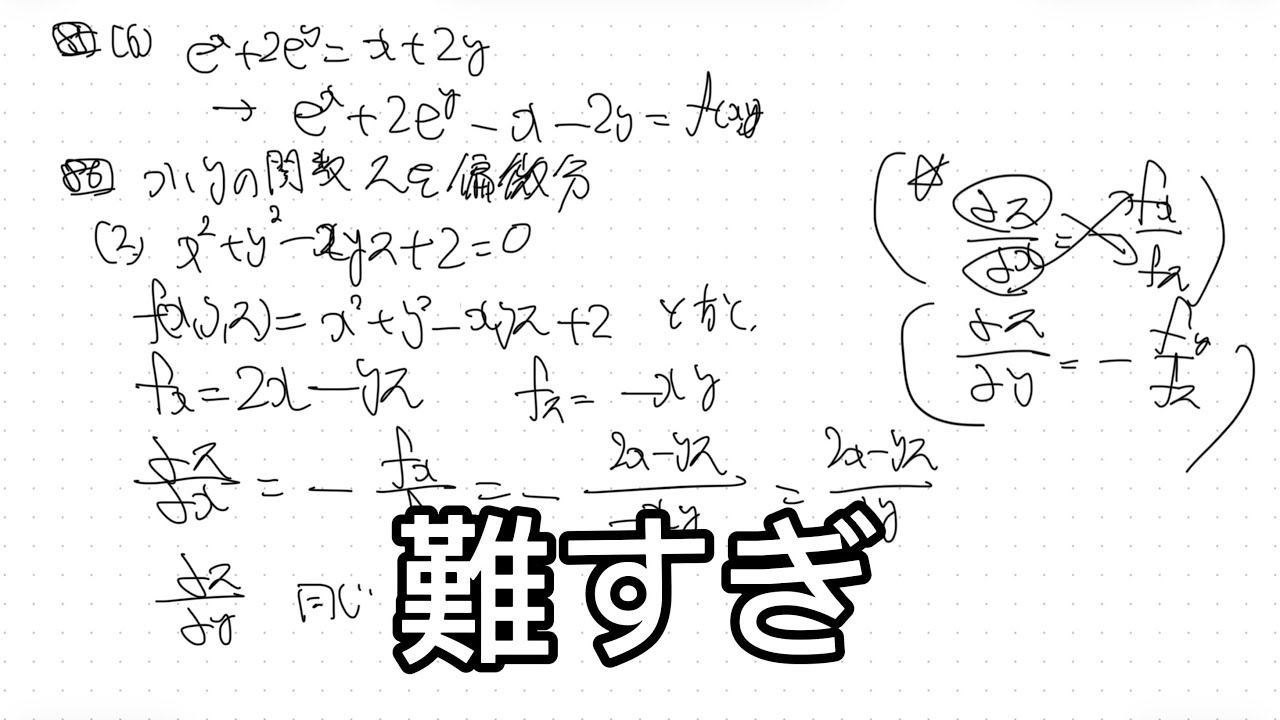 (6) eˣ+2eʸ=x+2y
→ eˣ+2eʸ-x-2y=f(x,y)
88 x,yの関数zを偏微分
(2) x²+y²-xyz+2=0
f(x,y,z)=x²+y²-xyz+2 とおく.
fx=2x-yz fz=-xy
∂z/∂x = - fx/ = - 2x-yz/-xy = 2x-yz/xy
∂z/∂y 同じ
(☆ ∂z/∂x = fx/fz)
(∂z/∂y = - fy/fz)
難すぎ